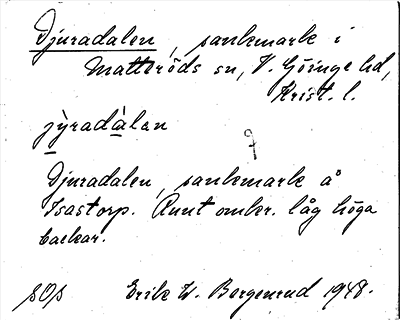 Djuradalen, sankmark i
Matteröds sn, V. Göinge hd,
Krist. l.
jỳradàlan
Djuradalen, sankmark å
Isastorp. Runt omkr. låg höga
backar.
SOS Erik W. Bergenrud 1948.